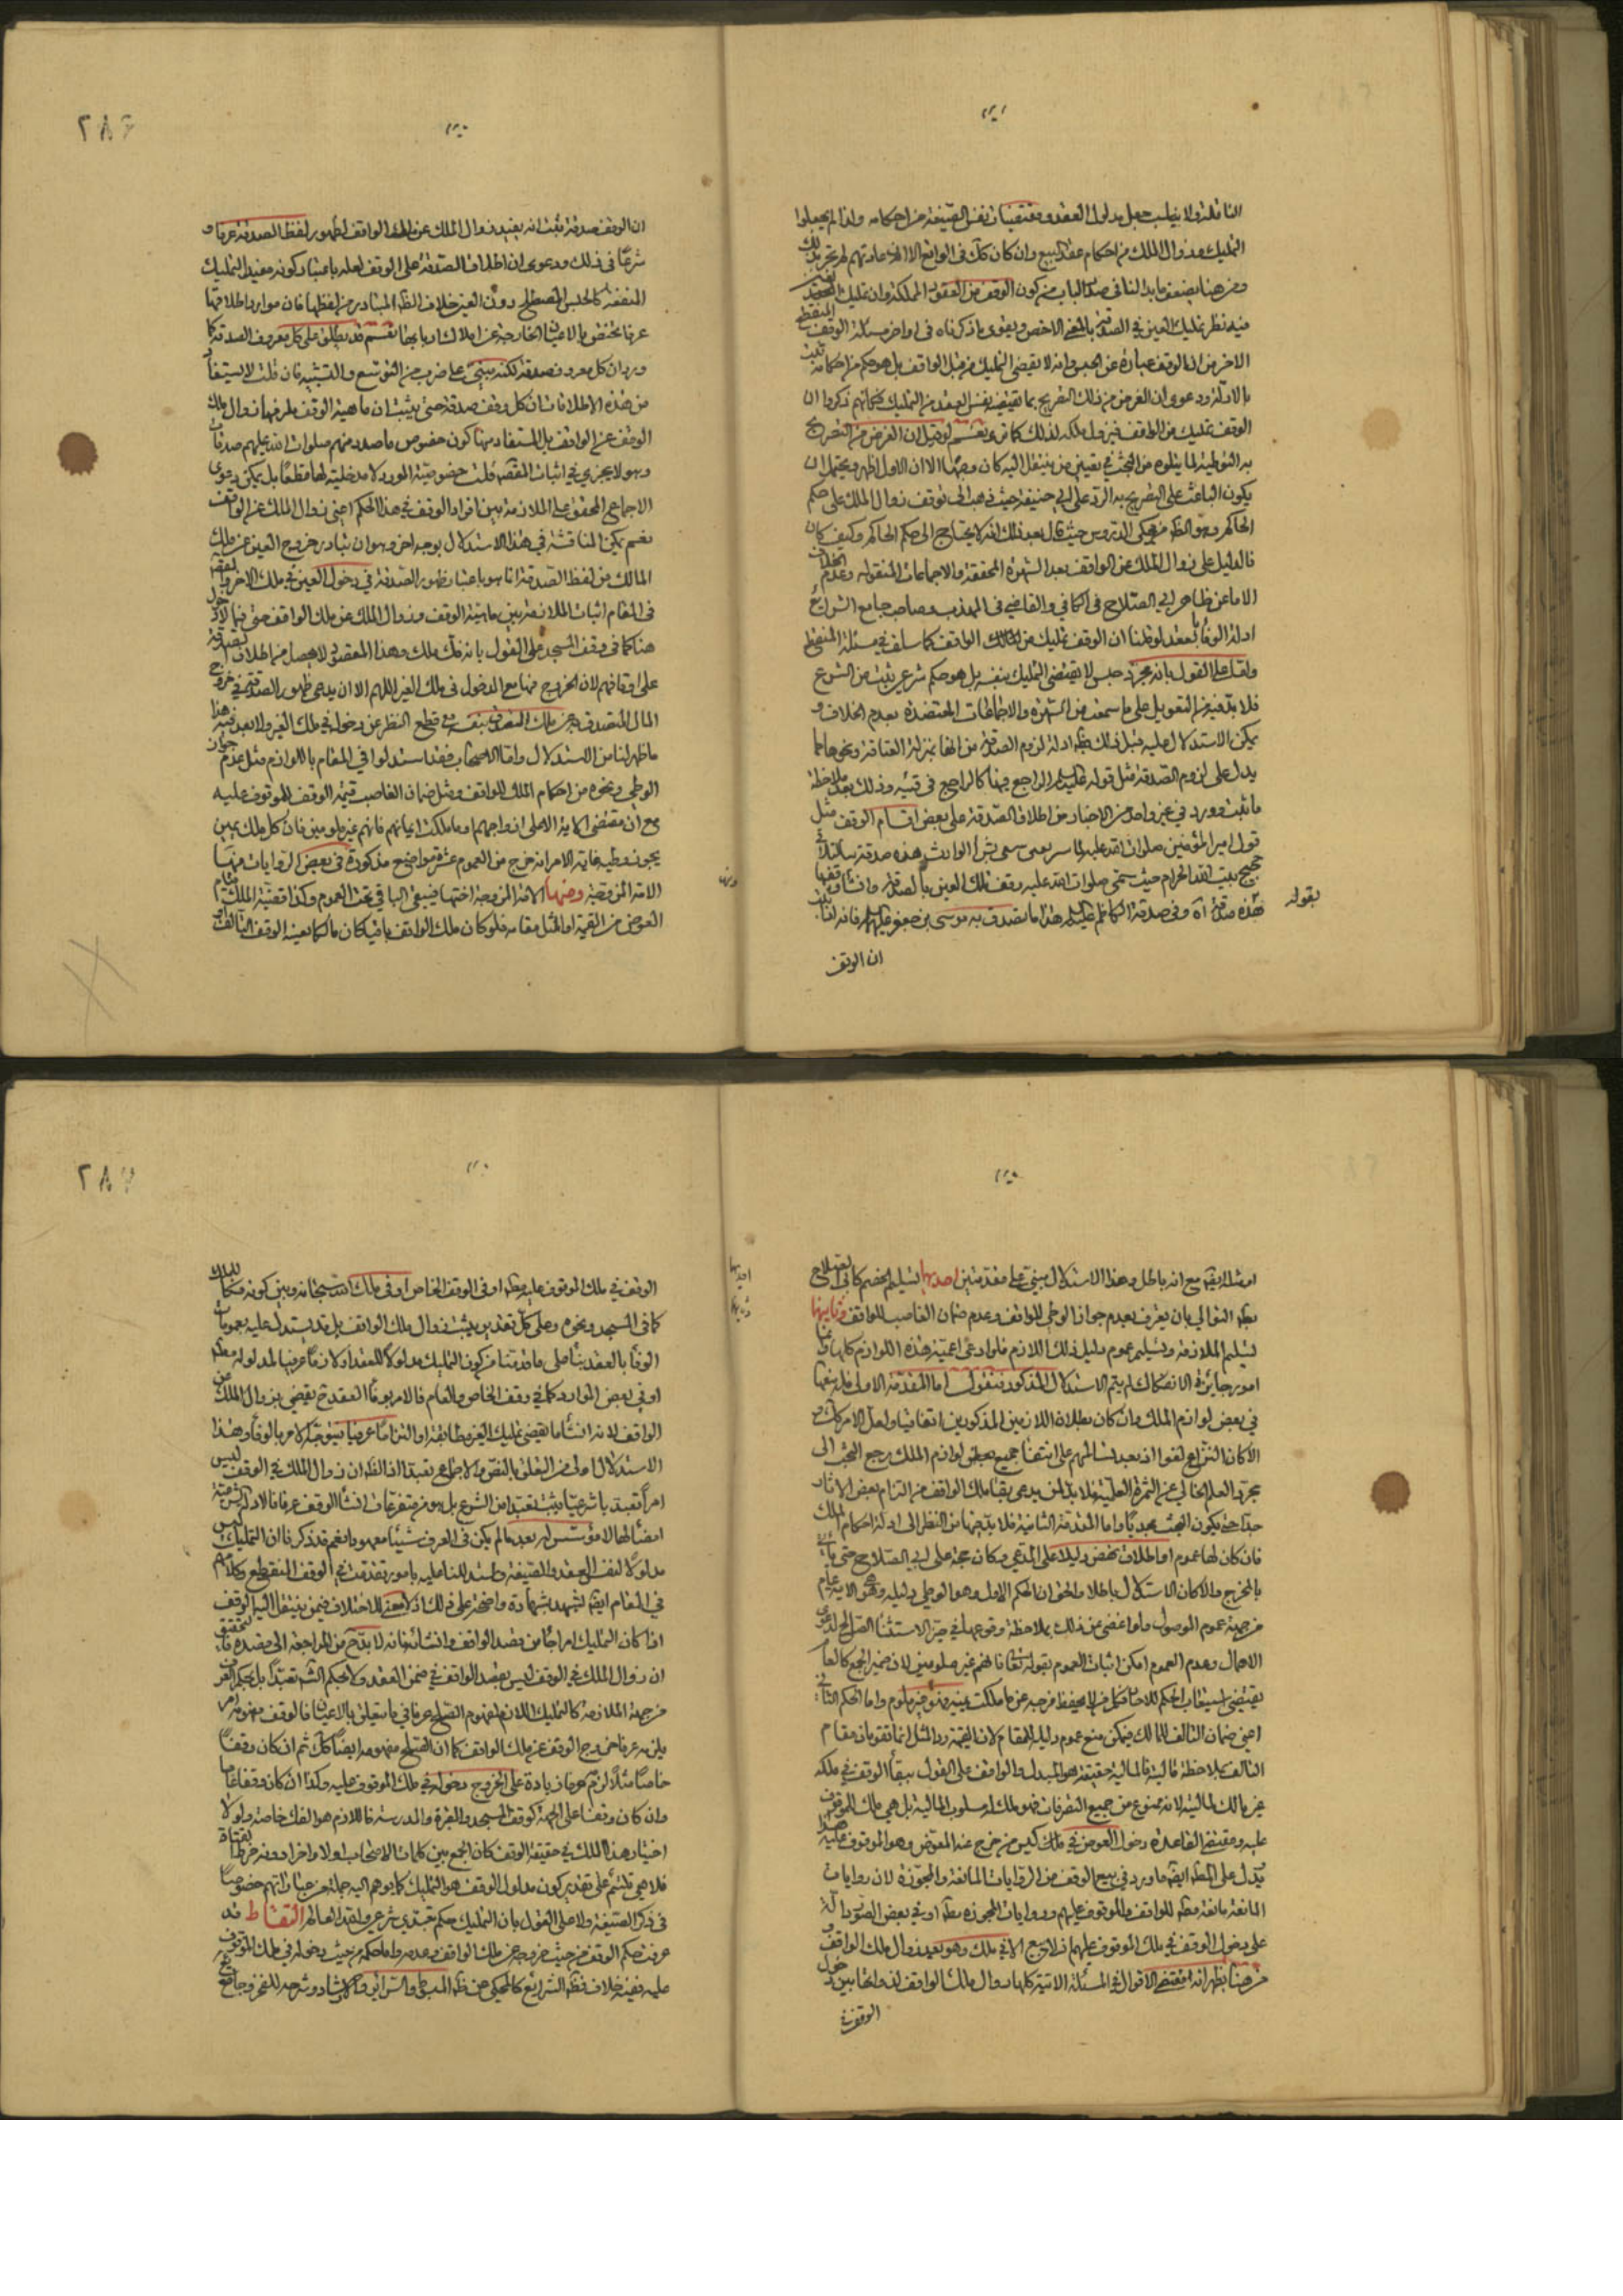 الناقلة ولا يطلب جعل مدلول العقد ومقتضيات نفس الصيغة من احكامه ولذا لم يجعلوا
التمليك وزوال الملك من احكام عقد البيع وان كان كك فى الواقع الا ان عادتهم لم تجر بذلك
ومن هنا يضعف ما بدا لنا فى صدر الباب من كون الوقف من العقود المملكة وان تمليك
فيه نظير تمليك العين في الصدقة بالمعنى الاخص ويقوى ما ذكرناه فى اواخر مسئلة الوقف المنقطع
الاخر من ان الوقف عبارة عن الحبس وانه لا يقضى التمليك من قبل الواقف بل هو حكم من احكامه ثبت
بالادلة ودعوى ان الغرض من ذلك التصريح بما تقتضيه نفس العقد من التمليك فكانهم ذكروا ان
الوقف تمليك من الواقف فيزول ملكه لذلك كما ترى نعم لو قيل ان الغرض من التصريح
به التوطئة لما يتلوه من البحث في تعيين من ينتقل اليه كان وجها الا ان الاول اظهر ويحتمل ان
يكون الباعث على التصريح به الرد على ابي حنيفة حيث ذهب الى توقف زوال الملك على حكم
الحاكم وهو الظ من محكى الدروس حيث قال بعد ذلك انه لا يحتاج الى حكم الحاكم وكيف كان
فالدليل على زوال الملك عن الواقف بعد الشهرة المحققة والاجماعات المنقولة وعدم الخلاف
الا ما عن ظاهر ابي الصلاح فى الكافي والقاضي فى المهذب وصاحب جامع الشرائع
ادلة الوفاء بالعقد لو قلنا ان الوقف تمليك من المالك الواقف كما سلف في مسئلة المنقطع
واما على القول بانه مجرد حبس لا يقتضى التمليك بنفسه بل هو حكم شرعى يثبت من الشرع
فلا بد فيه من التعويل على ما سمعت من الشهرة والاجماعات المعتضدة بعدم الخلاف و
يمكن الاستدلال عليه قبل ذلك بظ ادلة لزوم الصدقة من انها بمنزلة العتاقة ونحوها مما
يدل على لزوم الصدقة مثل قوله عليه السلم الراجع فيها كالراجع فى قيئه وذلك بعد ملاحظة
ما ثبت وورد في غير واحد من الاخبار من اطلاق الصدقة على بعض اقسام الوقف مثل
قول امير المؤمنين صلوات الله عليه لما بشر بعين هذه صدقة بتا بتلا في
حجيج بيت الله الحرام حيث سمى صلوات الله عليه وقف تلك العين بالصدقة وانشأ وقفها بقوله
هذه صدقة اه وفى صدقة الكاظم عليه السلم هذا ما تصدق به موسى بن جعفر عليهما السلم فانه اذا ثبت
ان الوقف
ان الوقف صدقة ثبت انه يفيد زوال الملك عن ملك الواقف لظهور لفظ الصدقة عرفا و
شرعًا فى ذلك ودعوى ان اطلاق الصدقة على الوقف لعله باعتبار كونه مفيدا لتمليك
المنفعة كالحبس المصطلح دون العين خلاف الظ المتبادر من لفظها فان موارد اطلاقها
عرفا تختص بالاعيان الخارجة عن املاك اربابها نعم قد يطلق على كل معروف الصدقة كما
ورد ان كل معروف صدقة لكنه مبنى على ضرب من التوسع والتشبيه فان قلت لا يستفاد
من هذه الاطلاقات ان كل وقف صدقة حتى يثبت ان ماهية الوقف يلزمها زوال ملك
الوقف عن الواقف بل المستفاد منها كون خصوص ما صدر منهم صلوات الله عليهم صدقات
وهو لا يجزي في اثبات المقصود قلت خصوصية المورد لا مدخلية لها قطعًا بل يمكن دعوى
الاجماع المحقق على الملازمة بين افراد الوقف في هذا الحكم اعنى زوال الملك عن الواقف
نعم يمكن المناقشة في هذا الاستدلال بوجه اخر وهو ان تبادر خروج العين عن ملك
المالك من لفظ الصدقة انما هو باعتبار ظهور الصدقة في دخول العين في ملك الاخر والمقصود
فى المقام اثبات الملازمة بين ماهية الوقف وزوال الملك عن ملك الواقف حتى فيما لا دخول
هناك كما فى وقف المسجد على القول بانه فك ملك وهذا المقصود لا يحصل من اطلاق الصدقة
على اوقافهم لان الخروج فيها مع الدخول فى ملك الغير اللهم الا ان يدعى ظهور الصدقة فى خروج
المال المتصدق به عن ملك المتصدق بنفسه مع قطع النظر عن دخوله في ملك الغير ولا بعد فيه هذا
ما ظهر لنا من الاستدلال واما الاصحاب فقد استدلوا في المقام باللوازم مثل عدم جواز
الوطي ونحوه من احكام الملك للواقف ومثل ضمان الغاصب قيمة الوقف للموقوف عليه
مع ان مقتضى الاية الا على ازواجهم او ما ملكت ايمانهم فانهم غير ملومين فان كل ملك يمين
يجوز وطيه غاية الامر انه خرج من العموم عشرة مواضع مذكورة فى بعض الروايات منها
الامة المزوجة ومنها الامة المزوجة اختها فيبقى الباقي تحت العموم وكذا قضية الملك قيام
العوض من القيمة او المثل مقامه فلو كان ملك الواقف باقيا كان مالكا بعينه الوقف التالف او
ومنها
امثاله ايضا مع انه باطل وهذا الاستدلال مبني على مقدمتين احديها تسليم الخصم كابى الصلاح
بطلا التوالي بان يعترف بعدم جواز الوطي للواقف وعدم ضمان الغاصب للواقف وثانيها
تسليم الملازمة وتسليم عموم دليل ذلك اللازم فلو ادعى اعمية هذه اللوازم كلها و انها
امور جايزة الانفكاك لم يتم الاستدلال المذكور فنقول اما المقدمة الاولى فله نفيها
في بعض لوازم الملك وان كان بطلان اللازمين المذكورين اتفاقيا ولعل الامر كك و
الا كان النزاع لغوا اذ بعد تسالمهم على انتفاء جميع لوازم الملك يرجع البحث الى
مجرد العلم الخالي عن الثمرة العملية فلا بد لمن يدعى بقاء ملك الواقف من التزام بعض الاثار
حتى يكون البحث مجديًا واما المقدمة الثانية فلا بد فيها من النظر الى ادلة احكام الملك
فان كان لها عموم او اطلاق نهض دليلا على المدعي وكان حجة على ابي الصلاح حتى يأتي
بالمخرج والا كان الاستدلال باطلا والحق ان الحكم الاول وهو الوطي دليله وهو الاية عام
من جهة عموم الموصول ولو اغمض عن ذلك بملاحظة وقوعها في حيز الاستثناء الصالح لدعوى
الاهمال وعدم العموم امكن اثبات العموم بقوله تعا فانهم غير ملومين لان ضمير الجمع كالعام
يقتضي استيعاب الحكم للاحاد فكل من لا يحفظ فرجه عن ما ملكت يمينه فهو غير ملوم واما الحكم الثاني
اعنى ضمان التالف للمالك فيمكن منع عموم دليله للمقام لان القيمة والمثل انما تقومان مقام
التالف بملاحظة ماليته فالمالية حقيقة هو المبدل والواقف على القول ببقاء الوقف في ملكه
غير مالك لمالية لانه ممنوع من جميع التصرفات فهو ملك مسلوب المالية بل هي ملك الموقوف
عليه ومقتضى القاعدة دخول العوض في ملك كيس من خرج عنه المعوض وهو الموقوف عليه هذا
ويدل على المط ايضا ما ورد في بيع الوقف من الروايات المانعة والمجوزة لان روايات
المانعة مانعة مط للواقف والموقوف عليهم وروايات المجوزة مط او في بعض الصور دالة
على دخول الوقف في ملك الموقوف عليهم اذ لا بيع الا في ملك وهو يفيد زوال ملك الواقف و
من هنا يظهر انه مقتضى الاقوال في المسئلة الاتية كلها زوال ملك الواقف لدورانها بين دخول
الوقف في
احديها
وثانيها
الوقف في ملك الموقوف عليه مط او فى الوقف الخاص او في ملك الله سبحانه وبين كونه فك الملك
كما في المسجد ونحوه وعلى كل تقدير يثبت زوال ملك الواقف بل قد يستدل عليه بعمومات
الوفاء بالعقد بناء على ما قدمنا من كون التمليك مدلولا للعقد او لازما عرفيا لمدلوله مط
او في بعض الموارد كما في وقف الخاص والعام فالامر بوفاء العقد ح يقضي بزوال الملك عن
الواقف لانه انشأ ما يقضى تمليك الغير مطابقة او التزامًا عرفيا فيتوجه الامر بالوفاء وهذا
الاستدلال اولى من التعلق بالنص والاجماع تعبدا اذ الظ ان زوال الملك في الوقف ليس
امرا تعبديا شرعيا ثبت تعبدا من الشرع بل هو من متفرعات انشاء الوقف عرفا فالادلة الشرعية
امضاء لها لا مؤسسة لامر بعد ما لم يكن فى العرف شيئا معهودا نعم قد ذكرنا ان التمليك ليس
مدلولا لنفس العقد والصيغة واستدللنا عليه بامور تقدمت في الوقف المنقطع وكلامهم
في المقام ايضا يشهد بشهادة واضحة على ذلك اذ لا معنى للاختلاف فيمن ينتقل اليه الوقف
اذا كان التمليك امرا جائيا من قصد الواقف وانشائه فانه لا بد ح من المراجعة الى قصده فالتحقيق
ان زوال الملك في الوقف ليس بقصد الواقف في ضمن العقد ولا بحكم الشرع تعبدا بل بحكم العرف
من جهة الملازمة كالتمليك اللازم لمفهوم الصلح عرفا في ما يتعلق بالاعيان فالوقف مفهومه امر
يلزمه عرفا خروج الوقف عن ملك الواقف كما ان الصلح مفهومه ايضا كك ثم ان كان وقفا
خاصا مثلا لزمه عرفا زيادة على الخروج دخوله في ملك الموقوف عليه وكذا ان كان وقفا عاما
وان كان وقفا على الجهة كوقف المسجد والمقبرة والمدرسة فاللازم هو الفك خاصة ولولا
اختيار هذا المسلك في حقيقة الوقف كان الجمع بين كلمات الاصحاب اولا واخرا دونه خرط القتاد
فلا هي تلتئم على تقدير كون مدلول الوقف هو التمليك كما يوهم اليه جملة من عباراتهم خصوصا
فى ذكر الصيغة ولا على القول بان التمليك حكم تعبدي شرعى والله العالم التقاط قد
عرفت حكم الوقف من حيث خروجه عن ملك الواقف وعدمه واما حكمه من حيث دخوله في ملك الموقوف
عليه ففيه خلاف فظ الشرايع كالمحكي عن ظ المبسوط والسرائر والارشاد وشرحه للفخر وجامع